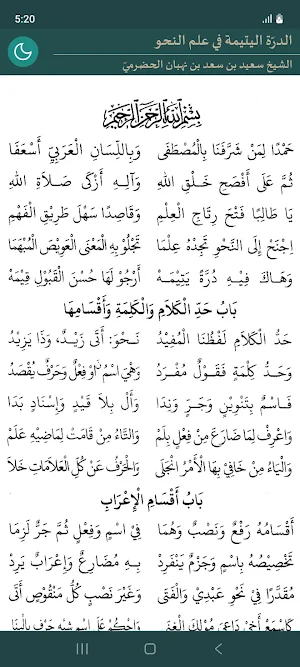 5:20
الدرّة اليتيمة في علم النحو
الشيخ سعيد بن سعد بن نبهان الحضرميّ
بِسْمِ اللَّهِ الرَّحْمَنِ الرَّحِيمِ
حَمْدًا لِمَنْ شَرَّفَنَا بِالْمُصْطَفَى وَبِاللِّسَانِ الْعَرَبِيِّ أَسْعَفَا
ثُمَّ عَلَى أَفْصَحِ خَلْقِ اللهِ وَآلِهِ أَزْكَى صَلَاةِ اللهِ
يَا طَالِبًا فَتْحَ رِتَاجِ الْعِلْمِ وَقَاصِدًا سَهْلَ طَرِيْقِ الْفَهْمِ
اِجْنَحْ إِلَى النَّحْوِ تَجِدْهُ عِلْمَا تَجْلُوْ بِهِ الْمَعْنَى الْعَوِيْصَ الْمُبْهَمَا
وَهَاكَ فِيْهِ دُرَّةً يَتِيْمَهْ أَرْجُوْ لَهَا حُسْنَ الْقَبُوْلِ قِيْمَهْ
بَابُ حَدِّ الْكَلَامِ وَالْكَلِمَةِ وَأَقْسَامِهَا
حَدُّ الْكَلَامِ لَفْظُنَا الْمُفِيْدُ نَحْوُ: أَتَى زَيْدٌ، وَذَا يَزِيْدُ
وَحَدُّ كِلْمَةٍ فَقَوْلٌ مُفْرَدُ وَهْيَ اسْمٌ اوْ فِعْلٌ وَحَرْفٌ يُقْصَدُ
فَاسْمٌ بِتَنْوِيْنٍ وَجَرٍّ وَنِدَا وَأَلْ بِلَا قَيْدٍ وَإِسْنَادٍ بَدَا
وَاعْرِفْ لِمَا ضَارَعَ مِنْ فِعْلٍ بِلَمْ وَالتَّاءُ مِنْ قَامَتْ لِمَاضِيْهِ عَلَمْ
وَالْيَاءُ مِنْ خَافِيْ بِهَا الْأَمْرُ انْجَلَى وَالْحَرْفُ عَنْ كُلِّ الْعَلَامَاتِ خَلَا
بَابُ أَقْسَامِ الْإِعْرَابِ
أَقْسَامُهُ رَفْعٌ وَنَصْبٌ وَهُمَا فِي اسْمٍ وَفِعْلٍ ثُمَّ جَرٌّ لَزِمَا
تَخْصِيْصُهُ بِاسْمٍ وَجَزْمٌ يَنْفَرِدْ بِهِ مُضَارِعٌ وَإِعْرَابٌ يَرِدْ
مُقَدَّرًا فِيْ نَحْوِ عَبْدِيْ وَالْفَتَى وَغَيْرَ نَصْبٍ كُلُّ مَنْقُوْصٍ أَتَى